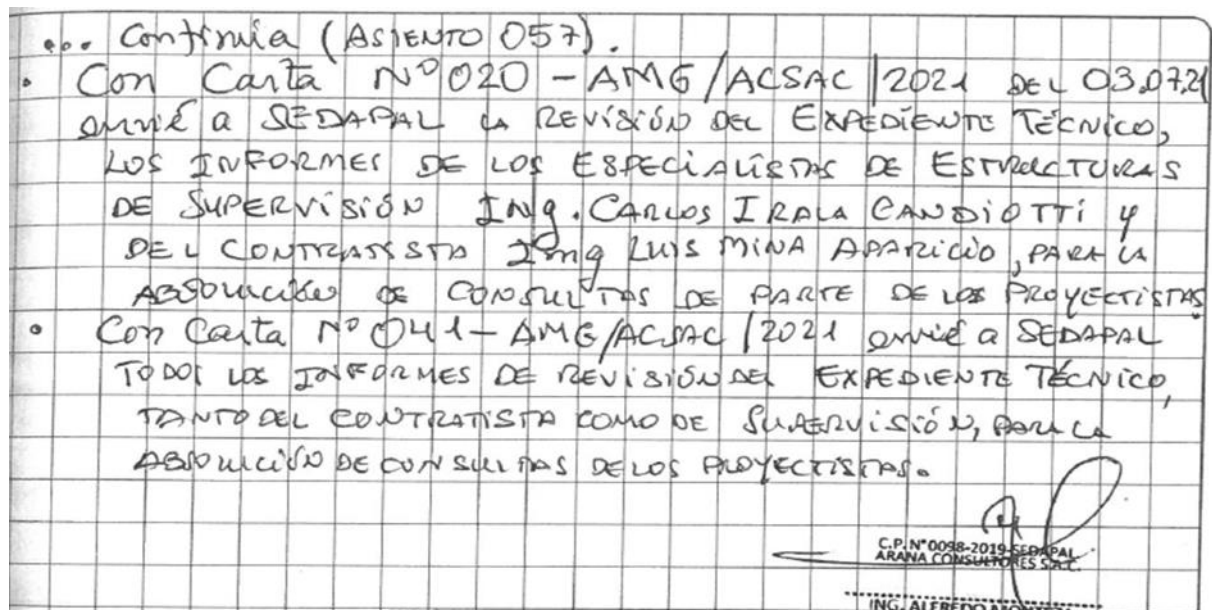 ... Continúa (ASIENTO 057).
• Con Carta N° 020 - AMG/ACSAC/2021 DEL 03.07.21
envié a SEDAPAL LA REVISIÓN DEL EXPEDIENTE TÉCNICO,
LOS INFORMES DE LOS ESPECIALISTAS DE ESTRUCTURAS
DE SUPERVISIÓN Ing. CARLOS IRALA CANDIOTTI y
DEL CONTRATISTA Ing LUIS MINA APARICIO, PARA LA
ABSOLUCIÓN DE CONSULTAS DE PARTE DE LOS PROYECTISTAS
• Con Carta N° 041 - AMG/ACSAC/2021 envié a SEDAPAL
TODOS LOS INFORMES DE REVISIÓN DEL EXPEDIENTE TÉCNICO,
TANTO DEL CONTRATISTA COMO DE SUPERVISIÓN, PARA LA
ABSOLUCIÓN DE CONSULTAS DE LOS PROYECTISTAS.
C.P. N° 0098-2019-SEDAPAL
ARANA CONSULTORES S.A.C.
ING. ALFREDO